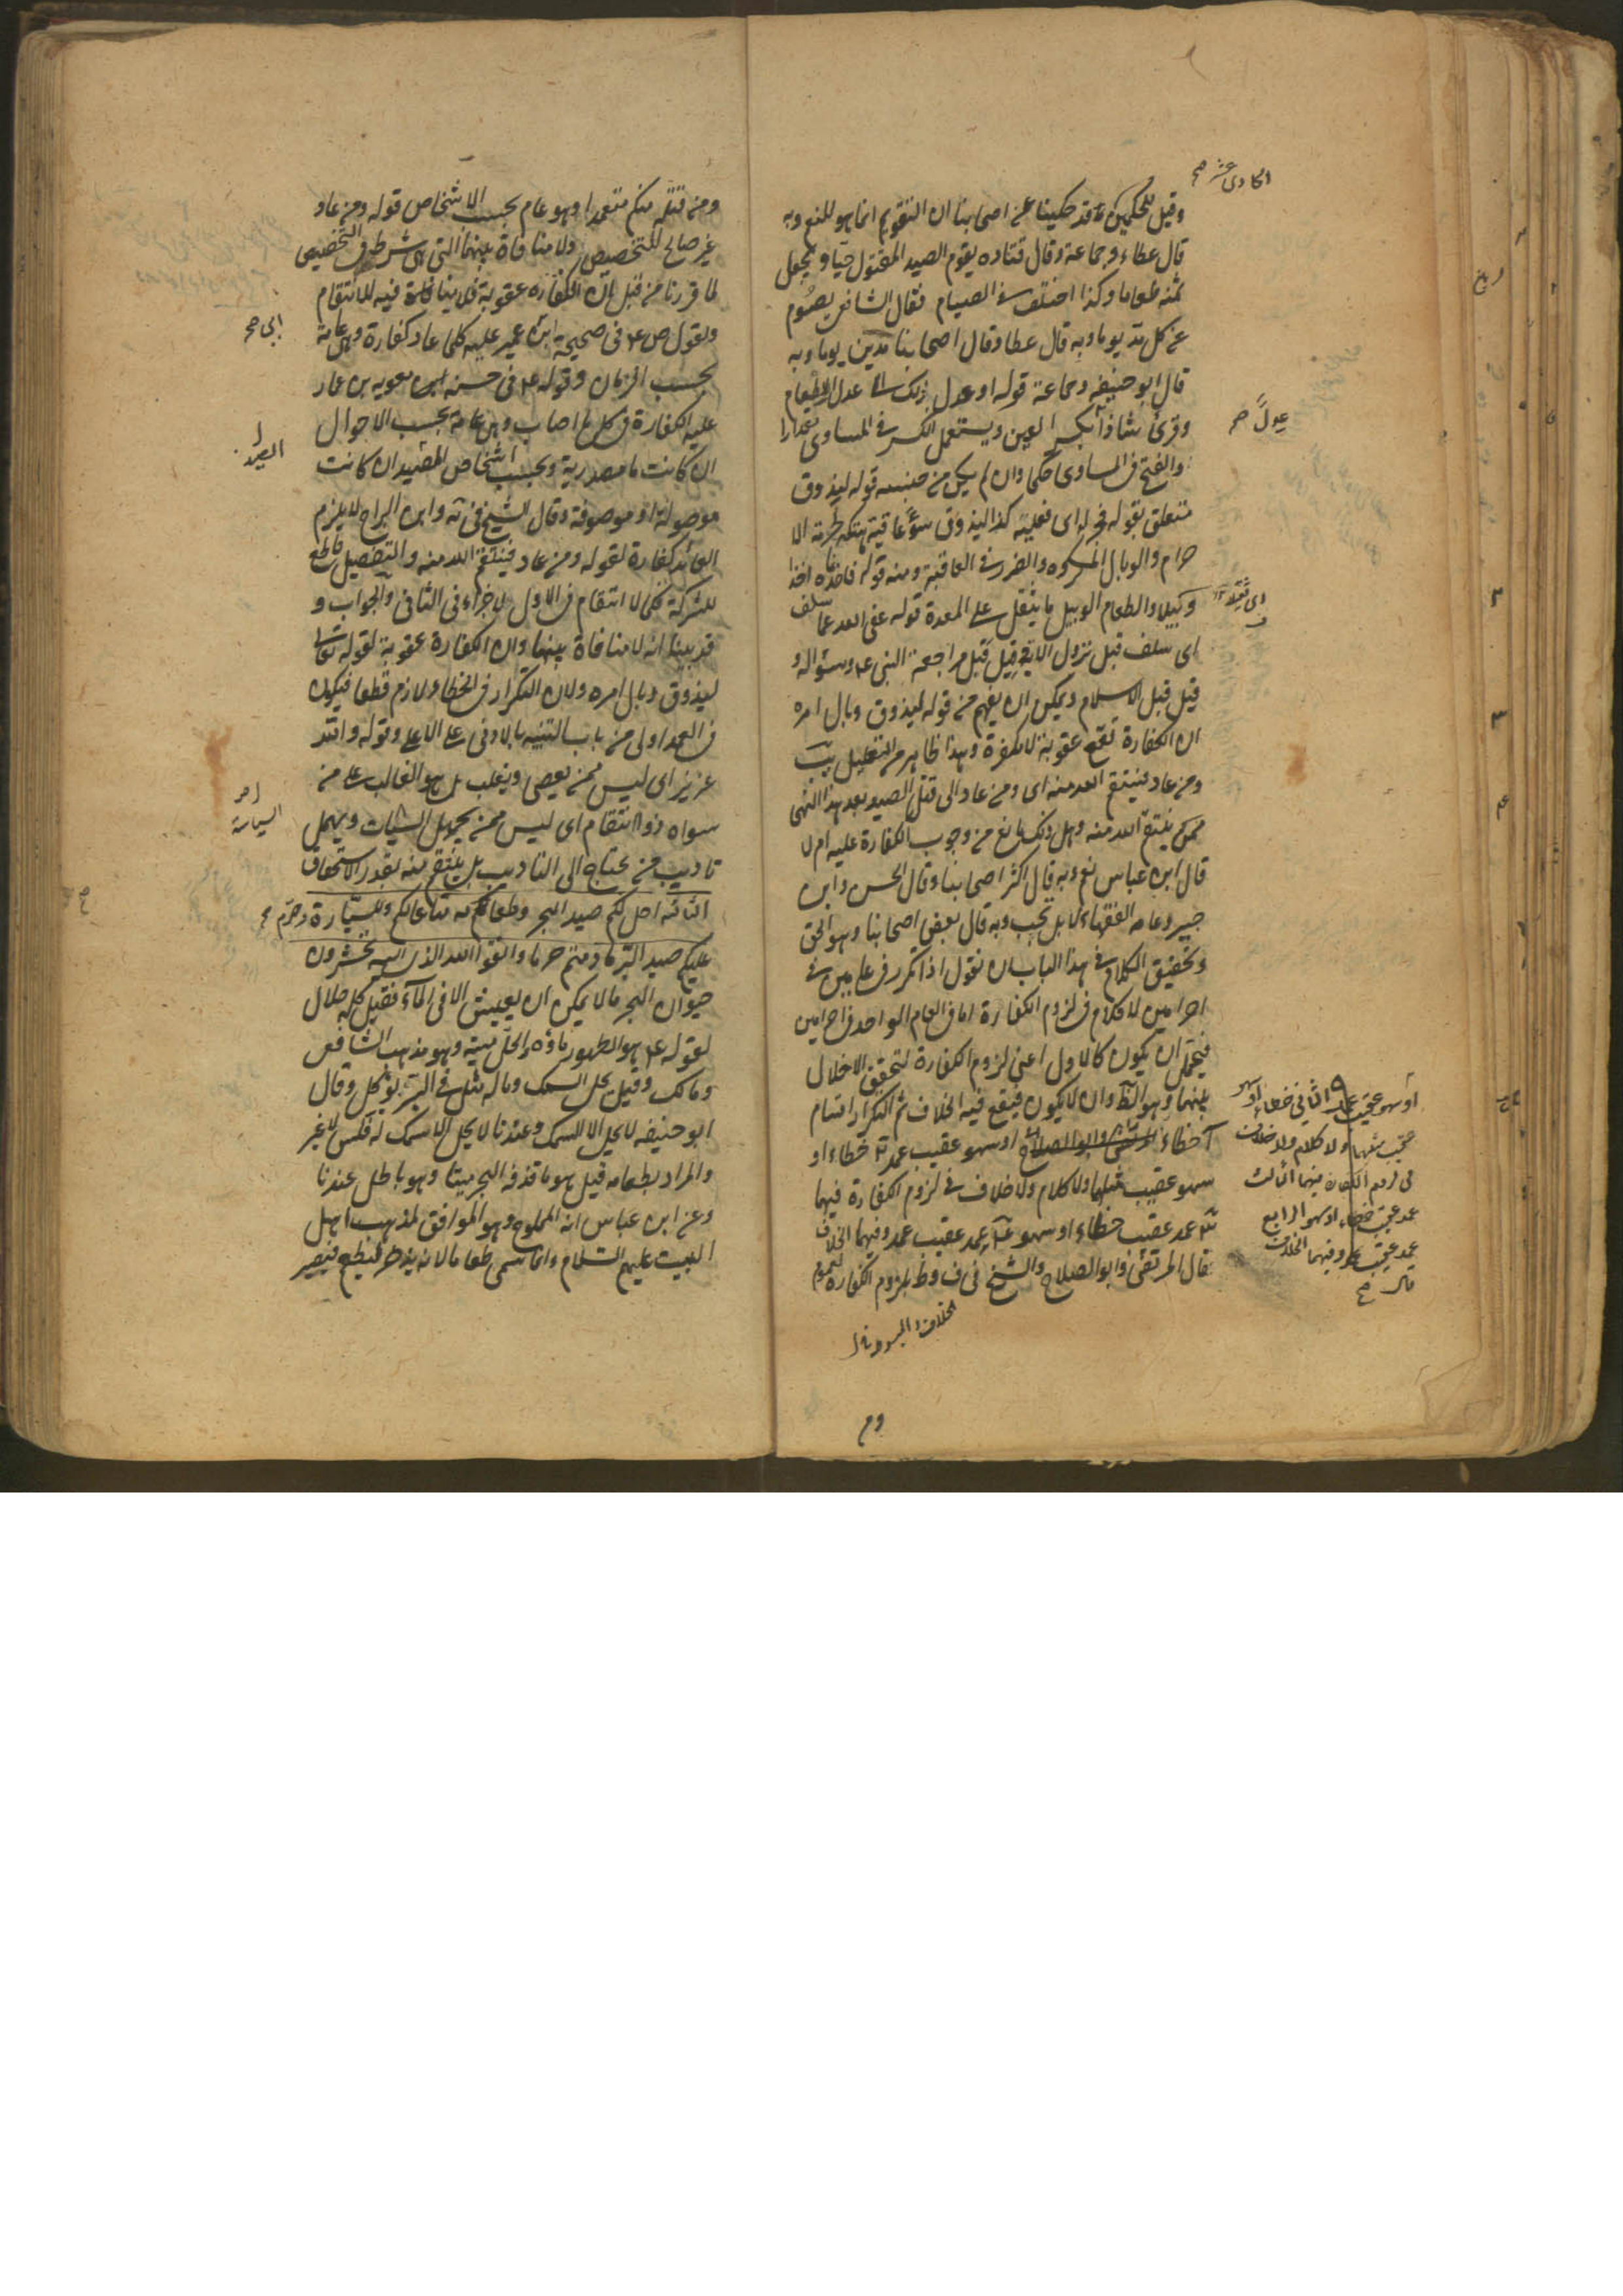 الحادي عشر صح
وقيل للحكمين قد حكينا عن اصحابنا ان التقويم انما هو للنعم وبه
قال عطاء وجماعة وقال قتاده يقوم الصيد المقتول حيا ويجعل
ثمنه طعاما وكذا اختلف في الصيام فقال الشافعي يصوم
عن كل مد يوما وبه قال عطا وقال اصحابنا مدين يوما وبه
قال ابو حنيفه وجماعة قوله او عدل ذلك اي عدل الاطعام
وقرئ شاذا بكسر العين ويستعمل الكسر في المساوي مقدارا
والفتح في المساوي حكما وان لم يكن من جنسه قوله ليذوق
متعلق بقوله فجزاء اي فعليه كذا ليذوق سوء عاقبة هتكه لحرمة الا
حرام والوبال المكروه والضرر في العاقبة ومنه قوله فاخذناه اخذا
وبيلا والطعام الوبيل ما يثقل على المعدة قوله عفى الله عما سلف
اي سلف قبل نزول الاية وقيل قبل مراجعة النبي ع وسؤاله و
قيل قبل الاسلام ويمكن ان يفهم من قوله ليذوق وبال امره
ان الكفارة تقع عقوبة لا مكفرة وهذا ظاهر من التعليل
ومن عاد فينتقم الله منه اي ومن عاد الى قتل الصيد بعد هذا النهي
ممن ينتقم الله منه وهل ذلك مانع من وجوب الكفارة عليه ام لا
قال ابن عباس نعم وبه قال اكثر اصحابنا وقال الحسن وابن
جبير وعامه الفقهاء لا بل تجب وبه قال بعض اصحابنا وهو الحق
وتحقيق الكلام في هذا الباب ان نقول اذا تكرر في عامين في
احرامين لا كلام في لزوم الكفارة اما في العام الواحد في احرامين
فيحتمل ان يكون كالاول اعني لزوم الكفارة لتحقق الاخلال
بينهما وهو الظ وان لا يكون فيقع فيه الخلاف ثم التكرار اقسام
آ خطاء او سهو عقيب عمد خطاء او
سهو عقيب مثلهما ولا كلام ولا خلاف في لزوم الكفارة فيهما
عمد عقيب خطاء او سهو عمد عقيب عمد وفيهما الخلاف
قال المرتضى وابو الصلاح والشيخ في ف وط بلزوم الكفاره لعموم
عدلا صح
اي ثقيلا
او سهو عقيب عمد الثاني خطاء او سهو
عقيب مثلهما ولا كلام ولا خلاف
في لزوم الكفارة فيهما الثالث
عمد عقيب خطاء او سهو الرابع
عمد عقيب عمد وفيهما الخلاف
قال صح
الخلاف والمبسوط
ومن قتله منكم متعمدا وهو عام بحسب الاشخاص قوله ومن عاد
غير صالح للتخصيص ولا منافاة بينهما التي هي شرط في التخصيص
لما قررنا من قبل ان الكفاره عقوبة فلا منافاة فيه للانتقام
ولقول ص ع في صحيحة ابن عمير عليه كلما عاد كفارة وهي عامة
بحسب الزمان وقوله ع في حسنه ابن معويه بن عمار
عليه الكفارة في كل ما اصاب وهي عامة بحسب الاحوال
ان كانت ما مصدرية وبحسب اشخاص المصيد ان كانت
موصولة او موصوفة وقال الشيخ في ية وابن البراج لا يلزم
العائد كفارة لقوله ومن عاد فينتقم الله منه والتفصيل قاطع
للشركة فكما لا انتقام في الاول لا جزاء في الثاني والجواب و
قد بينا انه لا منافاة بينهما وان الكفارة عقوبة لقوله تعالى
ليذوق وبال امره ولان التكرار في الخطا ولازم قطعا فيكون
في العمد اولى من باب التنبيه بالادنى على الاعلى وقوله والله
عزيز اي ليس ممن يعصي ويغلب بل هو الغالب على من
سواه ذو انتقام اي ليس ممن يجهل السيات ويهمل
تاديب من يحتاج الى التاديب بل ينتقم منه بقدر الاستحقاق
الثانية احل لكم صيد البحر وطعامه متاعا لكم وللسيارة وحرم
عليكم صيد البر ما دمتم حرما واتقوا الله الذي اليه تحشرون
حيوان البحر ما لا يمكن ان يعيش الا في الماء فقيل كله حلال
لقوله ع هو الطهور ماؤه والحل ميته وهو مذهب الشافعي
ومالك وقيل يحل السمك وماله مثل في البر يؤكل وقال
ابو حنيفه لا يحل الا السمك وعندنا لا يحل الا سمك له فلس لا غير
والمراد بطعامه قيل هو ما قذفه البحر ميتا وهو باطل عندنا
وعن ابن عباس انه المملوح وهو الموافق لمذهب اهل
البيت عليهم السلام وانما سمى طعاما لانه يدخر ليطعم فيصير
ابي صح
الصيد
السياسة